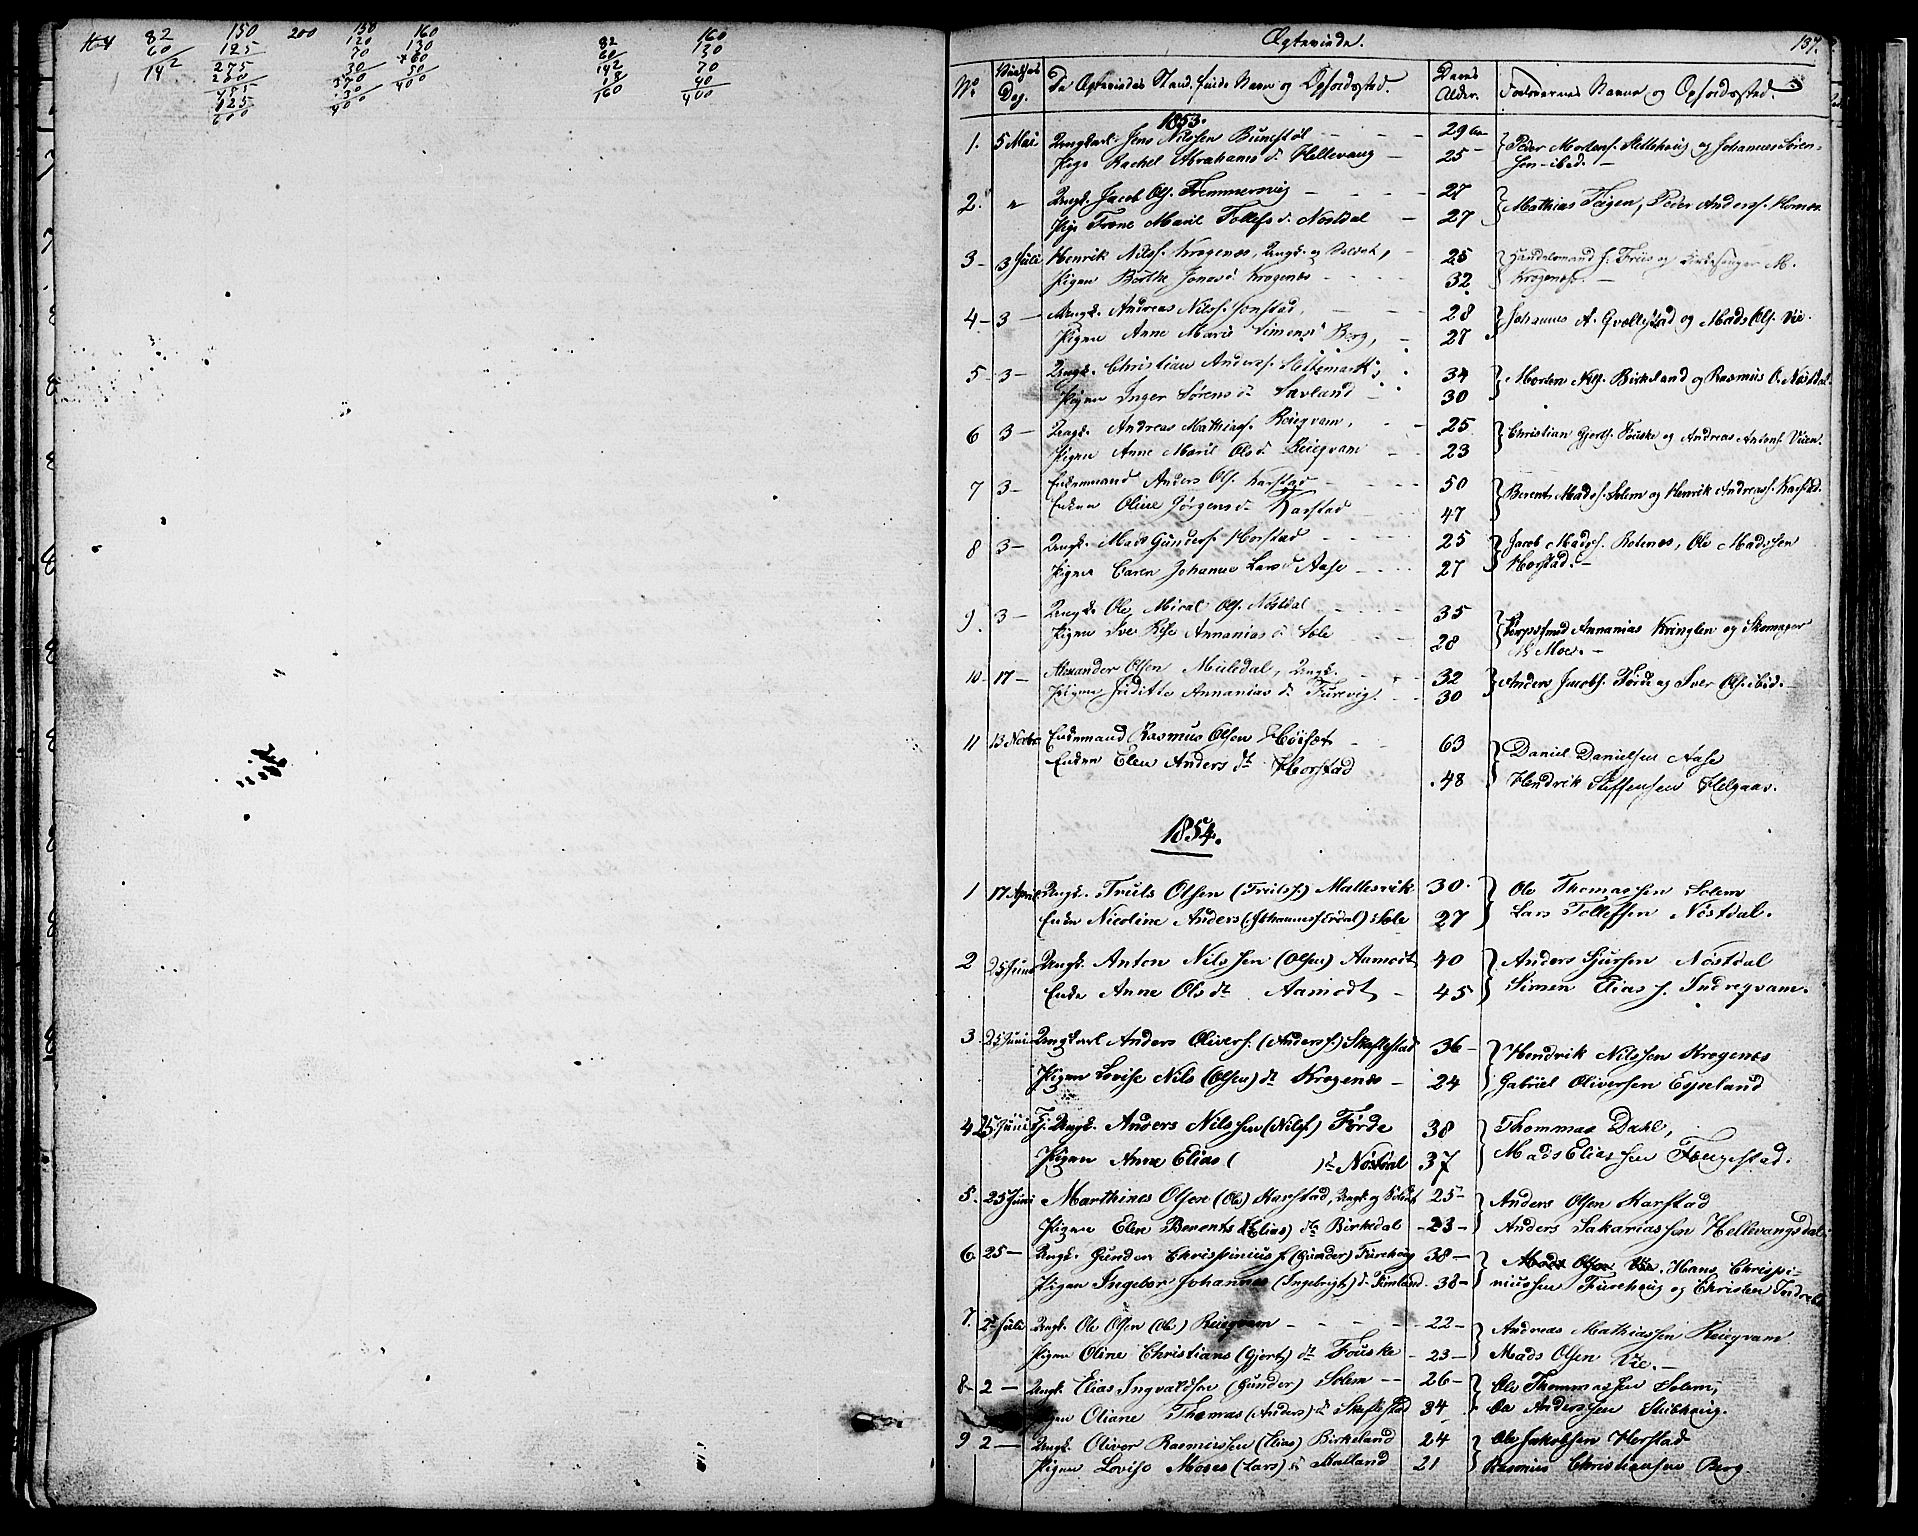 164 82 150 200 150 160 82 160
60 125 120 130 60 130
142 275 70 +60 142 70
200 30 50 18 40
475 370 400 160 400
125 30
600 400
Ægteviede. 137.
No Vielses Dag. De Ægteviedes Stand, fulde Navn og Opholdssted. Deres Alder. Forlovernes Navne og Opholdssted.
1853.
1. 5 Mai Ungkarl Jens Nilssen Bunestøl 29 Aar
Pige Rachel Abrahams d. Hellevang 25
Peder Mortens. Slettehaug og Johannes Søren-
sen ibid. —
2. " Ungk. Jacob Ols. Fremmersvig 27
Pige Trone Maril Tollefs d. Nøstdal 27
Mathias Teigen, Peder Anderss. Hornes
3 - 3 Juli Henrik Nilss. Krogenes, Ungk. og Soldat, 25
Pigen Berthe Jonas d. Krogenes 32
Handelsmand H. Friis og Kirkesanger M.
Krogenes. —
4 - 3 — Ungk. Andreas Nilss. Sonstad, 28
Pigen Anne Marie Simens d. Berg, 27
Johannes A. Gvallestad og Mads Ols. Vie.
5 - 3 — Ungk. Christian Anderss. Slettemark, 34
Pigen Inger Sørens d. Sævland 30
Morten Nils. Birkeland og Rasmus O. Nøstdal.
6 3 — Ungk. Andreas Mathiass. Reiegvam, 25
Pigen Anne Maril Ols d. Reiegvam 23
Christian Gjerts. Fouske og Andreas Antons. Vien.
7 3 - Enkemand Anders Ols. Karstad 50
Enken Oline Jørgens d. Karstad 47
Berent Madss. Solem og Henrik Andreass. Karstad.
8 3 — Ungk. Mads Gunders. Horstad 25
Pigen Caren Johanne Lars d. Aase 27
Jacob Madss. Botnes, Ole Madssen
Horstad. —
9. 3 — Ungk. Ole Mical Ols. Nøstdal 35
Pigen Annanias d. Sole 28
Annanias Kringlen og Skomager
N. Moe. —
10 - 17 — Alexander Olsen Muledal, Ungk. 32
Pigen Juditte Annanias d. Furevig 30
Anders Jacobs. Førde og Iver Ols. ibid. —
11 13 Novbr Enkemand Rasmus Olsen Høiset 63
Enken Elen Anders dt. Horstad 48
Daniel Danielsen Aase
Hendrik Steffensen Helgaas.
1854.
1 17 April Ungk. Truls Olsen (Trulss.) Mallesvik 30.
Enke Nicoline Anders (Johannes) dt. Sole 27
Ole Thomassen Solem
Lars Tollefsen Nøstdal.
2 25 Juni Ungk. Anton Nilssen (Olsen) Aamodt 40
Enke Anne Ols dt. Aamodt — 45
Anders Sjursen Nøstdal
Simen Elias s. Indregvam.
3 25 Juni Ungkarl Anders Olivers. (Anders s.) Skaflestad 36 —
Pigen Lovise Nils (Olsen) dt. Krogenes — 24
Hendrik Nilssen Krogenes
Gabriel Oliversen Espeland
4 25 Juni Ungk. Anders Nilssen (Nils) Førde 38
Pigen Anne Elias ( ) dt. Nøstdal 37
Thommas Dahl,
Mads Eliassen Faugestad.
5. 25 Juni Marthines Olsen (Ole) Karstad, Ungk. og Soldat 25 —
Pigen Elen Berents (Elias) dt. Birkedal — 23 —
Anders Olsen Karstad
Anders Sakariassen Hellevangsdal.
6. 25 — Ungk. Gunder Chrispinius s. (Gunder) Furehaug 38 —
Pigen Ingebor Johannes (Ingebrigt) d. Timland. 38 —
Mads Olsen Vie. Hans Chrispi-
niussen Furehaug og Christen
7. 2 Juli Ungk. Ole Olsen (Ole) Reiegvam 22 —
Pigen Oline Christians (Gjert) dt. Fouske — 23 —
Andreas Mathiassen Reiegvam
Mads Olsen Vie. —
8 - 2 — Ungk. Elias Ingvaldsen (Gunder) Solem — 26 —
Pigen Oliane Thomas (Anders) d. Skaflestad 34 —
Ole Thommassen Solem,
Ole Anderssen Stubhaug.
9 2 — Ungk. Oliver Rasmussen (Elias) Birkeland 24
Pigen Lovise Moses (Lars) d. Halland 21
Ole Jakobsen Horstad
Rasmus Christiansen Berg